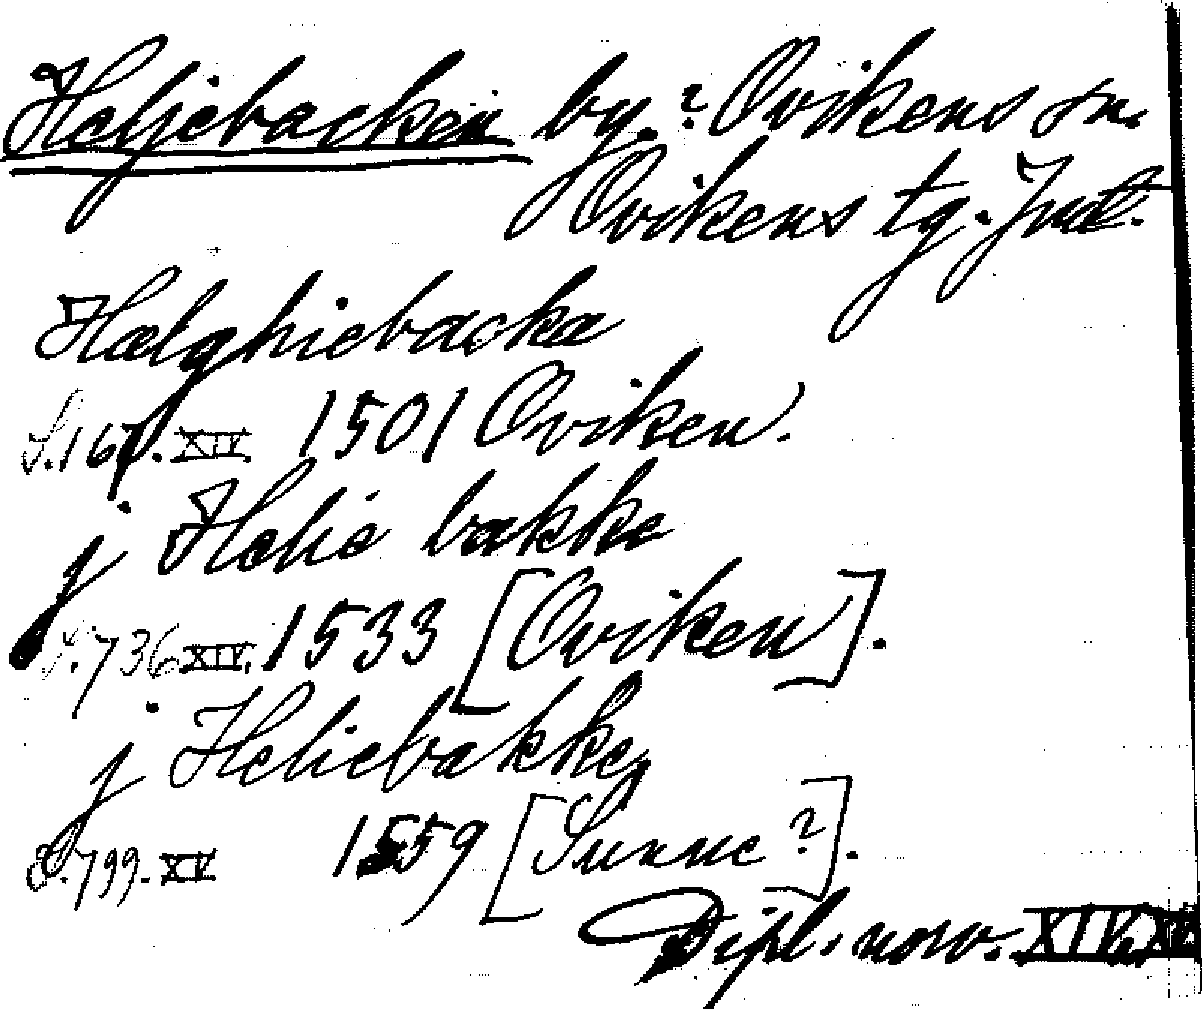 Heljebacken by.? Ovikens sn.
Ovikens tg. Jmtl.
Hælghiebacka
S. 167. XIV. 1501 Oviken.
j Helie bakke
S. 736 XIV. 1533 [Oviken].
j Heliebakke
S. 799. XV 1559 [Sunne?].
Dipl. norv. XIV, XV